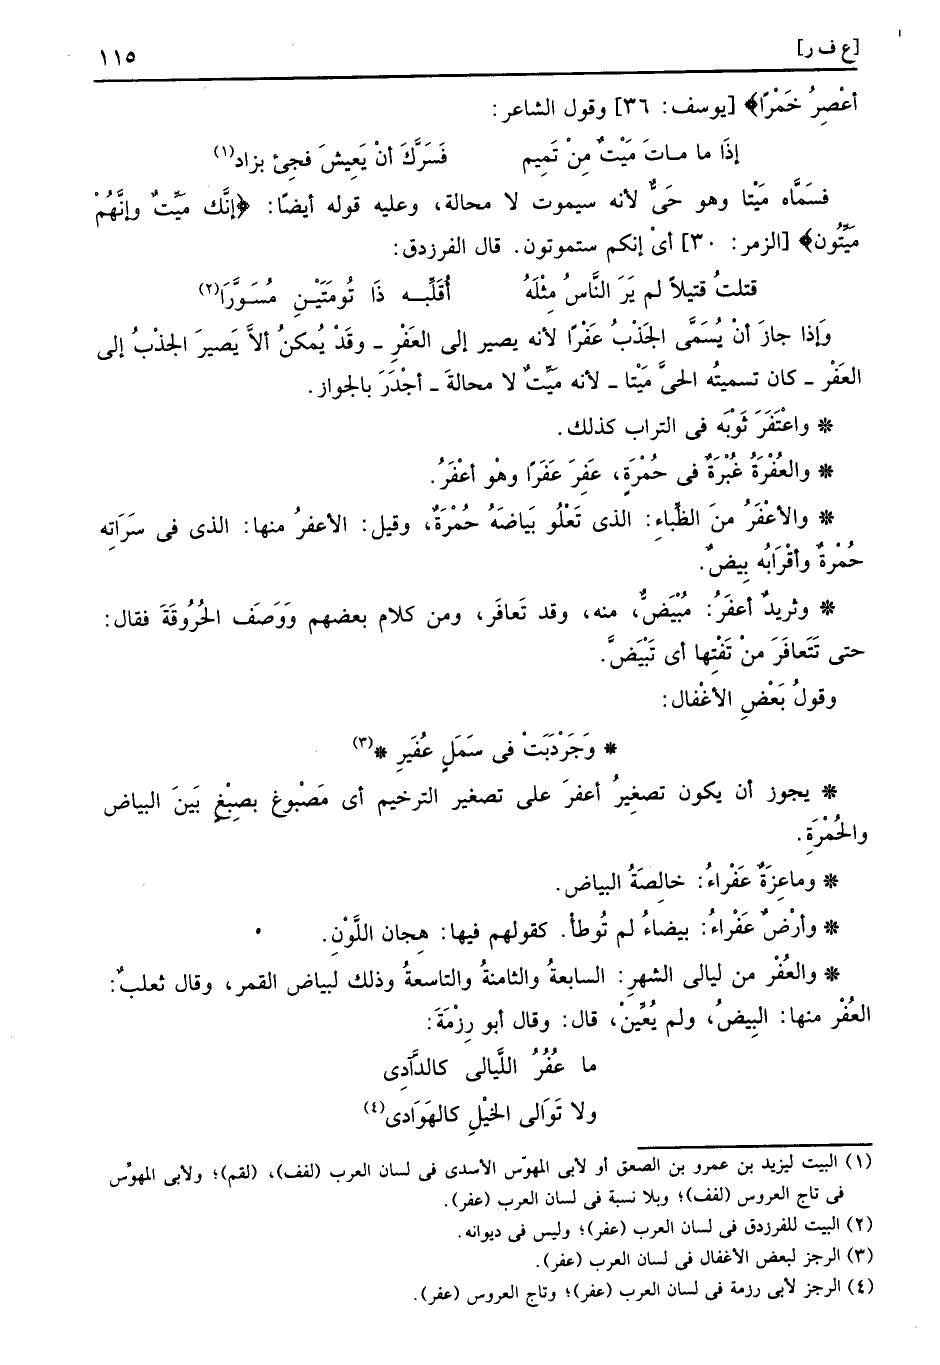 [ع ف ر] ١١٥
أعْصِرُ خَمْرًا﴾ [يوسف: ٣٦] وقول الشاعر:
إذَا ما مـاتَ مَيْتٌ مِنْ تَمِيم فَسَرَّكَ أنْ يَعِيشَ فجِئ بزاد(١)
فسَمَّاه مَيْتا وهو حَىٌّ لأنه سيموت لا محالة، وعليه قوله أيضًا: ﴿إنَّك مَيِّتٌ وإنَّهُمْ
مَيِّتُون﴾ [الزمر: ٣٠] أىْ إنكم ستموتون. قال الفرزدق:
قتلتُ قتيلاً لم يَرَ النَّاسُ مِثْلَهُ أُقَلِّبـــه ذَا تُومَتَيْـنِ مُسَـوَّرَا(٢)
وَإذا جازَ أنْ يُسَمَّى الجَذْبُ عَفْرًا لأنه يصير إلى العَفْرِ ـ وقَدْ يُمكنُ ألاَّ يَصيرَ الجذْبُ إلى
العَفْر ـ كان تسميتُه الحىَّ مَيْتا ـ لأنه مَيِّتٌ لا محالةَ ـ أجْدَرَ بالجواز.
* واعْتَفَرَ ثَوْبَه فى التراب كذلك.
* والعُفْرَةُ غُبْرَةٌ فى حُمْرَةٍ، عَفِرَ عَفَرًا وهوْ أعْفَرُ.
* والأعْفَرُ منَ الظِّباءِ: الذى تَعْلُو بَياضَهُ حُمْرَةٌ، وقيل: الأعفرُ منها: الذى فى سَرَاتِه
حُمْرةٌ وأقْرَابُه بِيضٌ.
* وثريدٌ أعفَرُ: مُبْيَضٌّ، منه، وقد تَعافَر، ومن كلام بعضهم وَوَصَف الحُرُوقَةَ فقال:
حتى تَتَعافَرَ منْ تَفْتِها أى تَبْيَضَّ.
وقولُ بَعْضِ الأغْفال:
* وَجَرْدَبَتْ فى سَمَلٍ عُفَيرِ *(٣)
* يجوز أن يكون تصغيرُ أعفرَ على تصغير الترخيم أى مَصْبوغ بصِبْغٍ بَينَ البياض
والحُمْرَةِ.
* وماعِزَةٌ عَفْراءُ: خالِصَةُ البياض.
* وأرْضٌ عَفْراءُ: بيضاءُ لم تُوطأْ. كقولهم فيها: هِجان اللَّوْنِ.
* والعُفْر من ليالى الشهرِ: السابعةُ والثامنةُ والتاسعةُ وذلك لبياض القمر، وقال ثعلبٌ:
العُفْر منها: البِيضُ، ولم يُعَيِّنْ، قال: وقال أبو رِزْمَةَ:
ما عُفُرُ اللَّيالى كالدَّآدِى
ولا تَوَالى الخيْلِ كالهَوَادى(٤)
(١) البيت ليزيد بن عمرو بن الصعق أو لأبى المهوّس الأسدى فى لسان العرب (لفف)، (لقم)؛ ولأبى المهوّس
فى تاج العروس (لفف)؛ وبلا نسبة فى لسان العرب (عفر).
(٢) البيت للفرزدق فى لسان العرب (عفر)؛ وليس فى ديوانه.
(٣) الرجز لبعض الأغفال فى لسان العرب (عفر).
(٤) الرجز لأبى رزمة فى لسان العرب (عفر)؛ وتاج العروس (عفر).